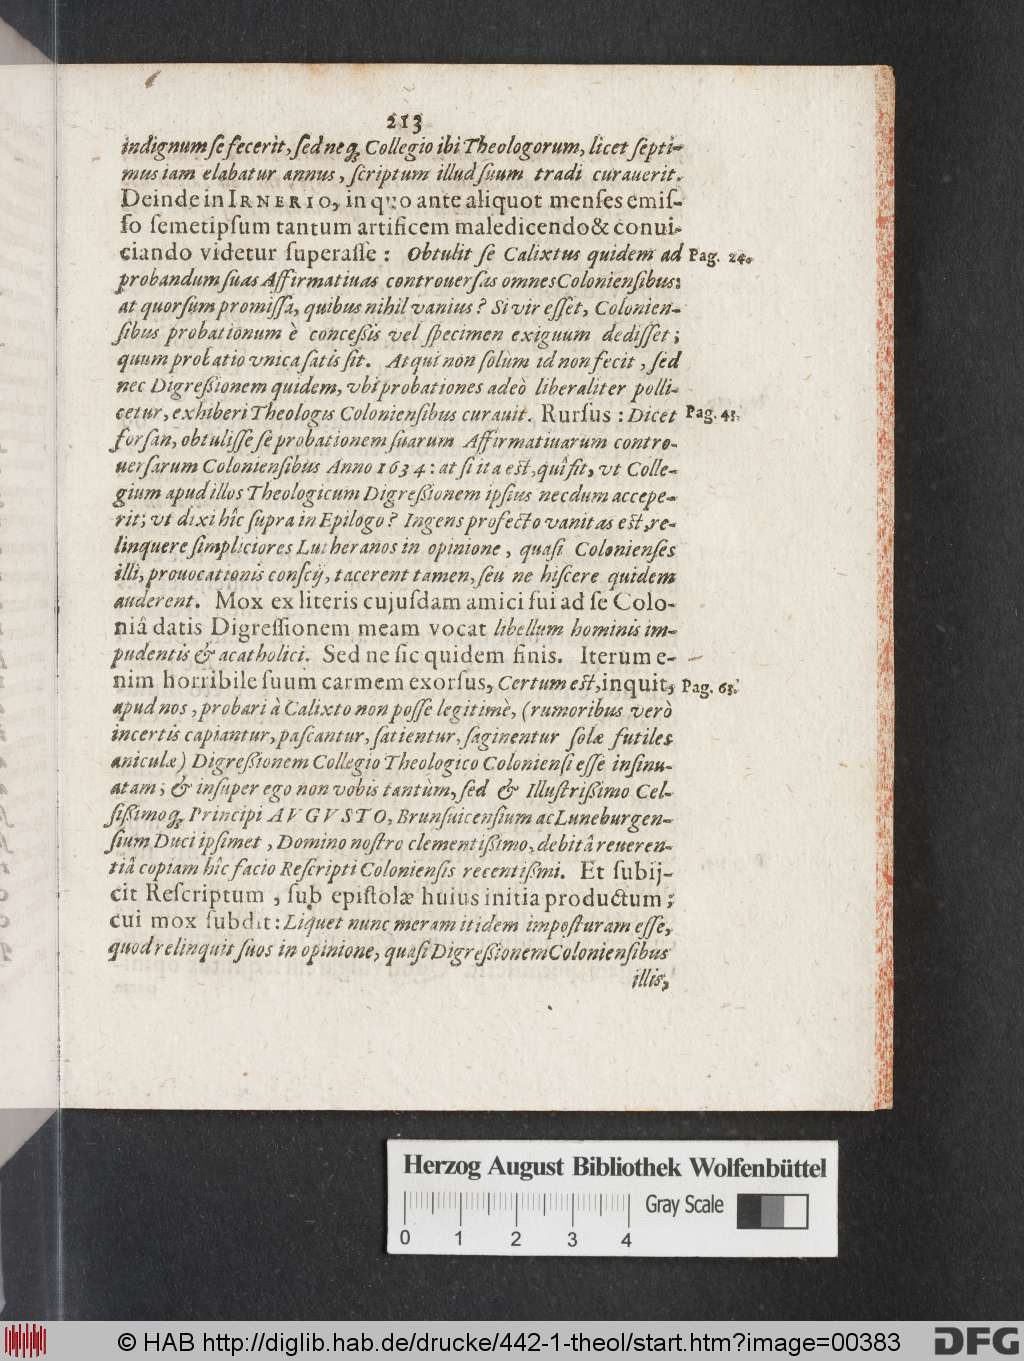 213
indignum se fecerit, sed neq́; Collegio ibi Theologorum, licet septi-
mus iam elabatur annus, scriptum illud suum tradi curauerit.
Deinde in IRNERIO, in quo ante aliquot menses emis-
so semetipsum tantum artificem maledicendo & convi-
ciando videtur superasse: Obtulit se Calixtus quidem ad
Pag. 24.
probandum suas Affirmatiuas controuersas omnes Coloniensibus:
at quorsum promissa, quibus nihil vanius? Si vir esset, Colonien-
sibus probationum è concessis vel specimen exiguum dedisset;
quum probatio vnica satis sit. Atqui non solùm id non fecit, sed
nec Digressionem quidem, vbi probationes adeò liberaliter polli-
cetur, exhiberi Theologis Coloniensibus curauit. Rursus: Dicet
Pag. 41.
forsan, obtulisse se probationem suarum Affirmatiuarum contro-
uersarum Coloniensibus Anno 1634: at si ita est, quî fit, vt Colle-
gium apud illos Theologicum Digressionem ipsius necdum accepe-
rit; vt dixi hîc supra in Epilogo? Ingens profecto vanitas est, re-
linquere simpliciores Lutheranos in opinione, quasi Colonienses
illi, prouocationis conscij, tacerent tamen, seu ne hiscere quidem
auderent. Mox ex literis cujusdam amici sui ad se Colo-
niâ datis Digressionem meam vocat libellum hominis im-
pudentis & acatholici. Sed ne sic quidem finis. Iterum e-
nim horribile suum carmem exorsus, Certum est, inquit,
Pag. 63.
apud nos, probari à Calixto non posse legitimè, (rumoribus verò
incertis capiantur, pascantur, satientur, saginentur solæ futiles
aniculæ) Digressionem Collegio Theologico Coloniensi esse insinu-
atam; & insuper ego non vobis tantùm, sed & Illustrissimo Cel-
sissimoq́; Principi AVGVSTO, Brunsuicensium ac Luneburgen-
sium Duci ipsimet, Domino nostro clementissimo, debitâ reueren-
tiâ copiam hîc facio Rescripti Coloniensis recentissimi. Et subij-
cit Rescriptum, sub epistolæ huius initia productum;
cui mox subdit: Liquet nunc meram itidem imposturam esse,
quod relinquit suos in opinione, quasi Digressionem Coloniensibus
illis,
Herzog August Bibliothek Wolfenbüttel
Gray Scale
0 1 2 3 4
© HAB http://diglib.hab.de/drucke/442-1-theol/start.htm?image=00383
DFG